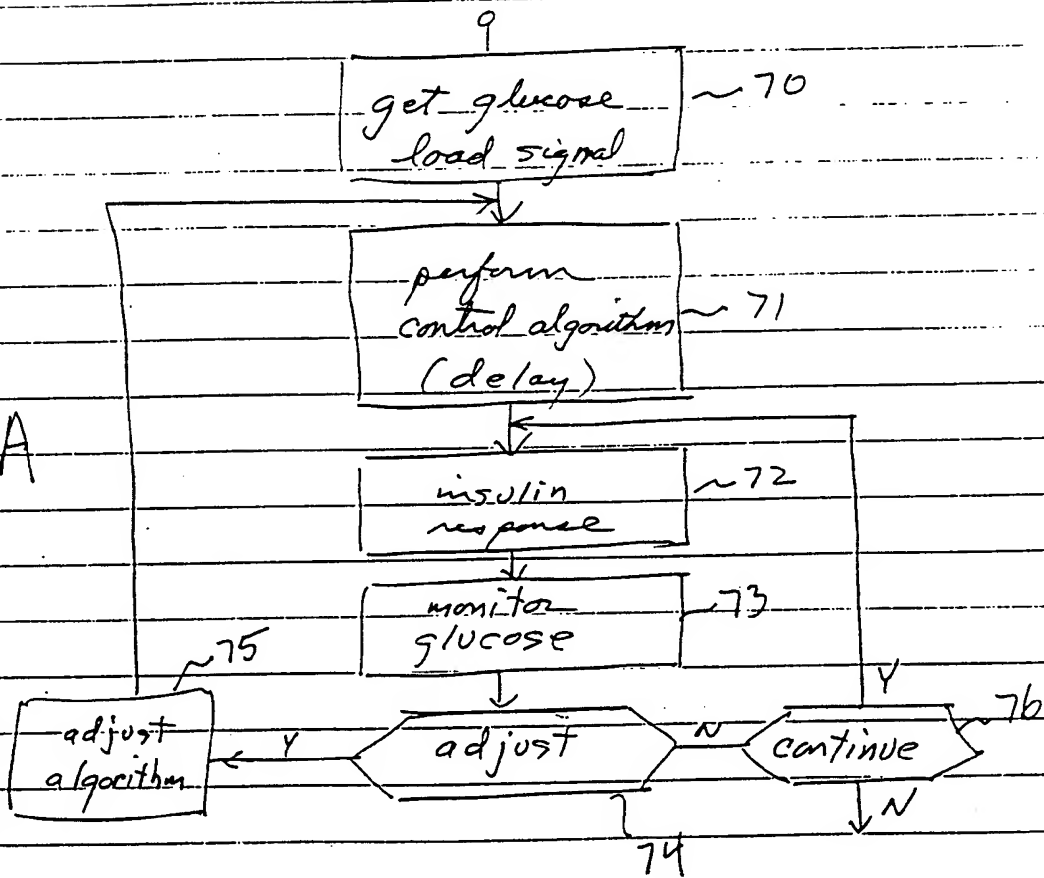 9
get glucose
load signal
70
perform
control algorithm
(delay)
71
A
insulin
response
72
monitor
glucose
73
75
adjust
algorithm
Y
adjust
74
N
continue
76
Y
N